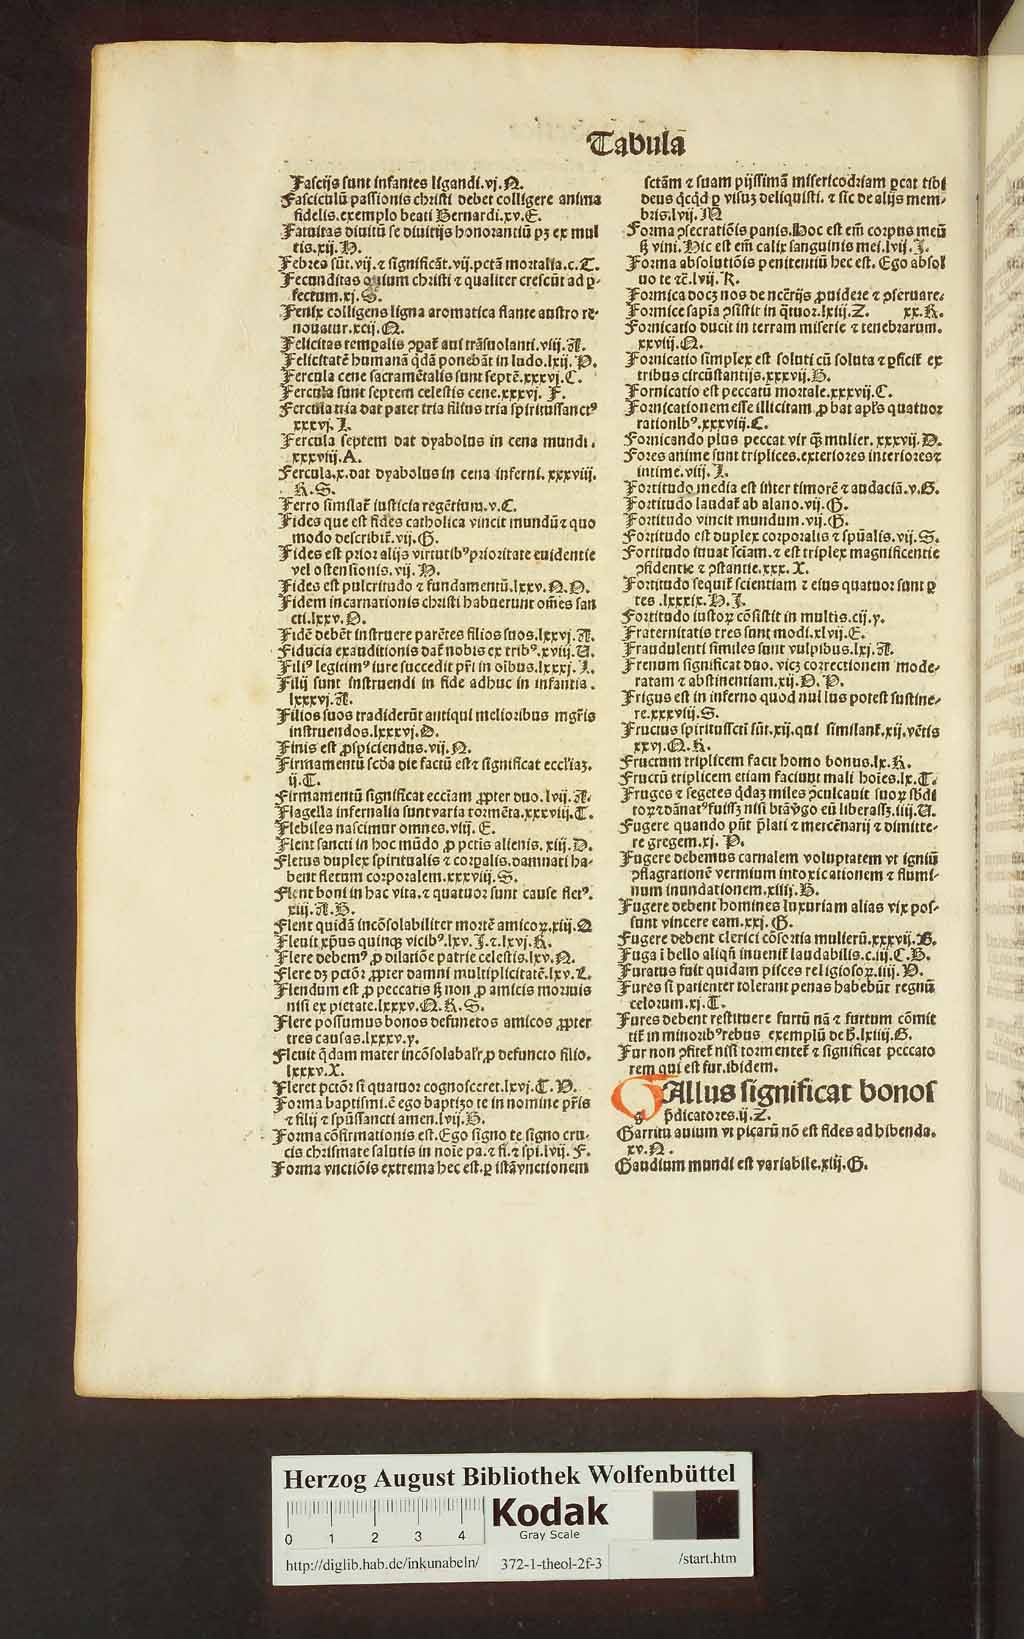 Tabula
Fascijs sunt infantes ligandi.vj.N.
Fasciculū passionis christi debet colligere anima
fidelis.exemplo beati Bernardi.xv.E.
Fatuitas diuitū se diuitijs honorantiū pꝫ ex mul
tis.xij.H.
Febres sūt.vij.⁊ significāt.vij.pctā mortalia.c.T.
Fecunditas ouium christi ⁊ qualiter crescūt ad ꝑ-
fectum.xj.S.
Fenix colligens ligna aromatica flante austro re-
nouatur.xcij.Q.
Felicitas temꝑalis ꝯꝑat̄ aui trāsuolanti.viij.A.
Felicitatē humanā q̄dā ponebāt in ludo.lxij.P.
Fercula cene sacramētalis sunt septē.xxxvj.C.
Fercula sunt septem celestis cene.xxxvj. F.
Fercula tria dat pater tria filius tria spiritussanctꝰ
xxxvj.I.
Fercula septem dat dyabolus in cena mundi.
xxxviij.A.
Fercula.x.dat dyabolus in cena inferni.xxxviij.
R.S.
Ferro similat̄ iusticia regētium.v.C.
Fides que est fides catholica vincit mundū⁊ quo
modo describit̄.vij.G.
Fides est prior alijs virtutibꝰprioritate euidentie
vel ostensionis.vij.H.
Fides est pulcritudo ⁊ fundamentū.lxxv.N.O.
Fidem incarnationis christi habuerunt om̄es san
cti.lxxv.O.
Fidē debēt instruere parētes filios suos.lxxvj.A.
Fiducia exauditionis dat̄ nobis ex tribꝰ.xviij.U.
Filiꝰ legitimꝰ iure succedit pr̄i in oībus.lxxxj.I.
Filij sunt instruendi in fide adhuc in infantia.
lxxxvj.A.
Filios suos tradiderūt antiqui melioribus mgr̄is
instruendos.lxxxvj.O.
Finis est ꝓspiciendus.vij.N.
Firmamentū scd̄a die factū est⁊ significat eccl̄iaꝫ.
ij.T.
Firmamentū significat ecc̄iam ꝓpter duo.lvij.A.
Flagella infernalia suntvaria tormēta.xxxviij.T.
Flebiles nascimur omnes.viij. E.
Flent sancti in hoc mūdo ꝓ pctīs alienis.xiij.D.
Fletus duplex spiritualis ⁊ corꝑalis.damnati ha-
bent fletum corporalem.xxxviij.S.
Flent boni in hac vita.⁊ quatuor sunt cause fletꝰ.
xiij.A.B.
Flent quidā incōsolabiliter mortē amicoꝝ.xiij.Q
Fleuit xp̄us quinqꝫ vicibꝰ.lxv.I.⁊.lxvj.K.
Flere debemꝰ ꝓ dilatiōe patrie celestis.lxv.N.
Flere dꝫ pctōr ꝓpter damni multiplicitatē.lxv.L.
Flendum est ꝓ peccatis ⁊ non ꝓ amicis mortuis
nisi ex pietate.lxxxv.Q.R.S.
Flere possumus bonos defunctos amicos ꝓpter
tres causas.lxxxv.y.
Fleuit q̄dam mater incōsolabilr̄ ꝓ defuncto filio.
lxxxv.X.
Fleret pctōr si quatuor cognosceret.lxvj.T.V.
Forma baptismi.ē ego baptizo te in nomine pr̄is
⁊ filij ⁊ spūssancti amen.lvij.H.
Forma cōfirmationis est.Ego signo te signo cru-
cis chrismate salutis in noīe pa.⁊ fi.⁊ spi.lvij.F.
Forma vnctiōis extrema hec est.ꝑ istāvnctionem
sctām ⁊ suam pijssimā misericordiam ꝑcat tibi
deus q̄cqd ꝑ visuꝫ deliquisti.⁊ sic de alijs mem-
bris.lvij.M
Forma ꝯsecratiōis panis.Hoc est em̄ corpus meū
ꝫ vini.Hic est em̄ calix sanguinis mei.lvij.I.
Forma absolutiōis penitentiū hec est.Ego absol
uo te ⁊c̄.lvij.K.
Formica docꝫ nos de nccr̄ijs ꝓuidere ⁊ ꝯseruare.
Formice sapīa ꝯsistit in q̄tuor.lxiij.Z. xx.K.
Fornicatio ducit in terram miserie ⁊ tenebrarum.
xxviij.Q.
Fornicatio simplex est soluti cū soluta ⁊ ꝑficit̄ ex
tribus circūstantijs.xxxvij.B.
Fornicatio est peccatū mortale.xxxvij.C.
Fornicationem esse illicitam ꝓbat apl̄s quatuor
rationibꝰ.xxxviij.C.
Fornicando plus peccat vir q̄ꝫ mulier.xxxvij.D.
Fores anime sunt triplices.exteriores interiores⁊
intime.viij.I.
Fortitudo media est inter timorē ⁊ audaciā.v.G.
Fortitudo laudat̄ ab alano.vij.G.
Fortitudo vincit mundum.vij.G.
Fortitudo est duplex corporalis ⁊ spūalis.vij.S.
Fortitudo iuuat scīam.⁊ est triplex magnificentie
ꝯfidentie ⁊ ꝯstantie.xxx.X.
Fortitudo sequit̄ scientiam ⁊ eius quatuor sunt ꝑ
tes.lxxxix.H.I.
Fortitudo iustoꝝ cōsistit in multis.cij.y.
Fraternitatis tres sunt modi.xlvij.E.
Fraudulenti similes sunt vulpibus.lxj.A.
Frenum significat duo.vicꝫ correctionem mode-
ratam ⁊ abstinentiam.xij.O.P.
Frigus est in inferno quod nullus potest sustine-
re.xxxviij.S.
Fructus spiritussctī sūt.xij.qui similant̄.xij.vētis
xxvj.Q.R.
Fructum triplicem facit homo bonus.lx.K.
Fructū triplicem etiam faciunt mali hoīes.lx.T.
Fruges ⁊ segetes q̄daꝫ miles ꝓculcauit suoꝝ sb̄di
toꝝ⁊dānatꝰfuissꝫ nisi btāv̄go eū liberassꝫ.iiij.U.
Fugere quando pn̄t p̄lati ⁊ mercēnarij ⁊ dimitte-
re gregem.xj. P.
Fugere debemus carnalem voluptatem vt igniū
ꝯflagrationē vermium intoxicationem ⁊ flumi-
num inundationem.xiiij.B.
Fugere debent homines luxuriam alias vix pos-
sunt vincere eam.xxj.G.
Fugere debent clerici cōsortia mulierū.xxxvij.G.
Fuga ī bello aliqn̄ inuenit̄ laudabilis.c.iij.C.H.
Furatus fuit quidam pisces religiosoꝝ.iiij.P.
Fures si patienter tolerant penas habebūt regnū
celorum.xj.T.
Fures debent restituere furtū nā ⁊ furtum cōmit
tit̄ in minoribꝰrebus exemplū de b̄.lxiiij.G.
Fur non ꝯfitet̄ nisi tormentet̄ ⁊ significat peccato
rem qui est fur.ibidem.
GAllus significat bonos
p̄dicatores.ij.Z.
Garritu auium vt picarū nō est fides adhibenda.
xv.N.
Gaudium mundi est variabile.xiij.G.
Herzog August Bibliothek Wolfenbüttel
Kodak
Gray Scale
0 1 2 3 4
http://diglib.hab.de/inkunabeln/ 372-1-theol-2f-3 /start.htm